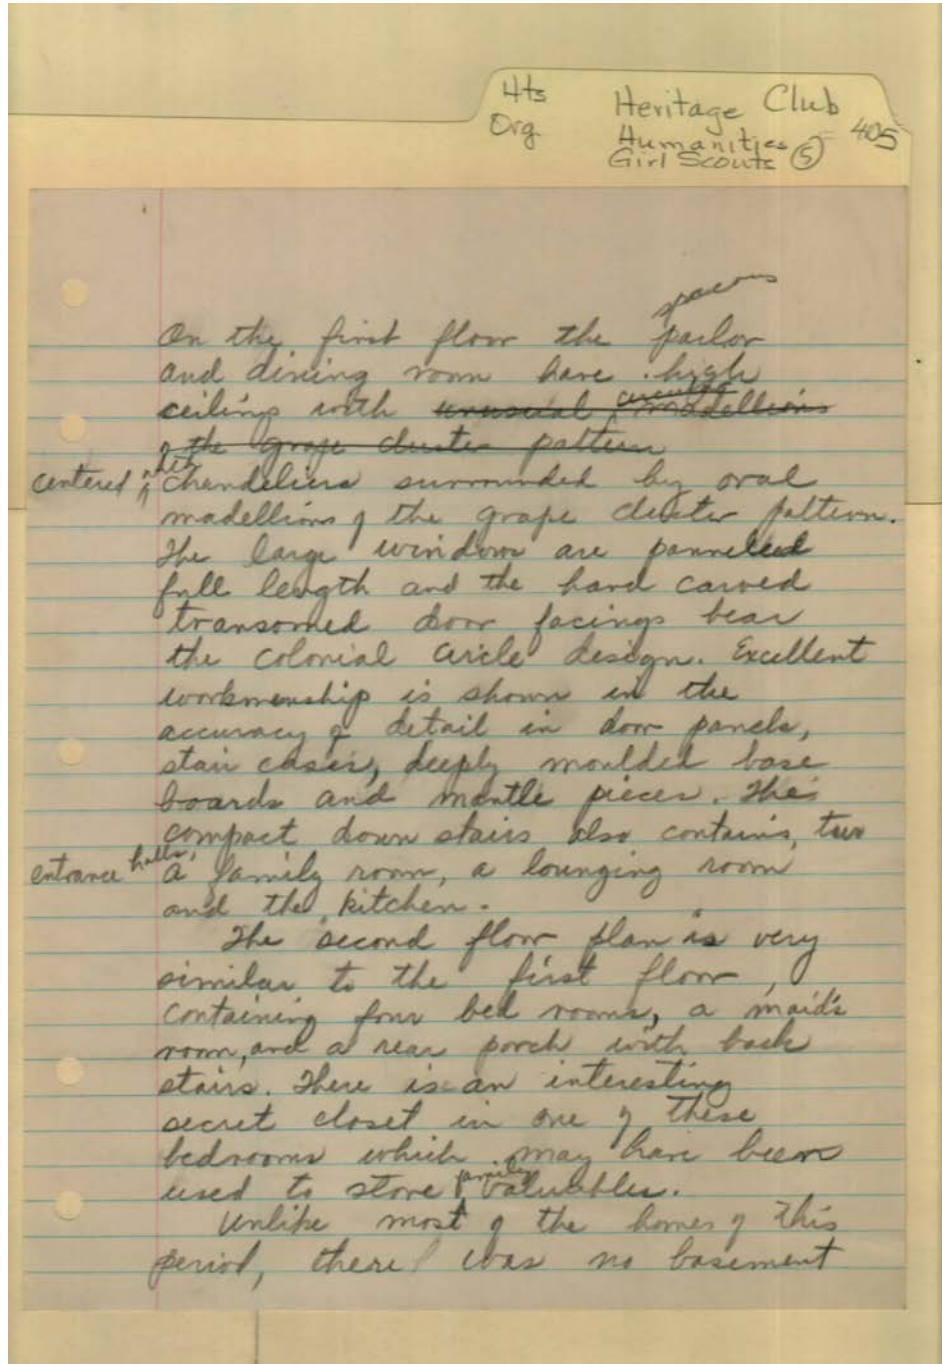 Hts
Org.
Heritage Club
Humanities
Girl Scouts (5)
405
spacious
On the first floor the parlor
and dining room have high
circular
ceilings with unusual madellions
of the grape cluster pattern
centered
chandeliers surrounded by oral
madellions of the grape cluster pattern.
The large windows are panneled
full length and the hand carved
transomed door facings bear
the colonial circle design. Excellent
workmenship is shown in the
accuracy of detail in door panels,
stair cases, deeply moulded base
boards and mantle pieces. The
compact down stairs also contains, two
entrance halls,
a family room, a lounging room
and the kitchen.
The second floor plan is very
similar to the first floor,
containing four bed rooms, a maid's
room, and a rear porch with back
stairs. There is an interesting
secret closet in one of these
bedrooms which may have been
family
used to store valuables.
Unlike most of the homes of this
period, there was no basement